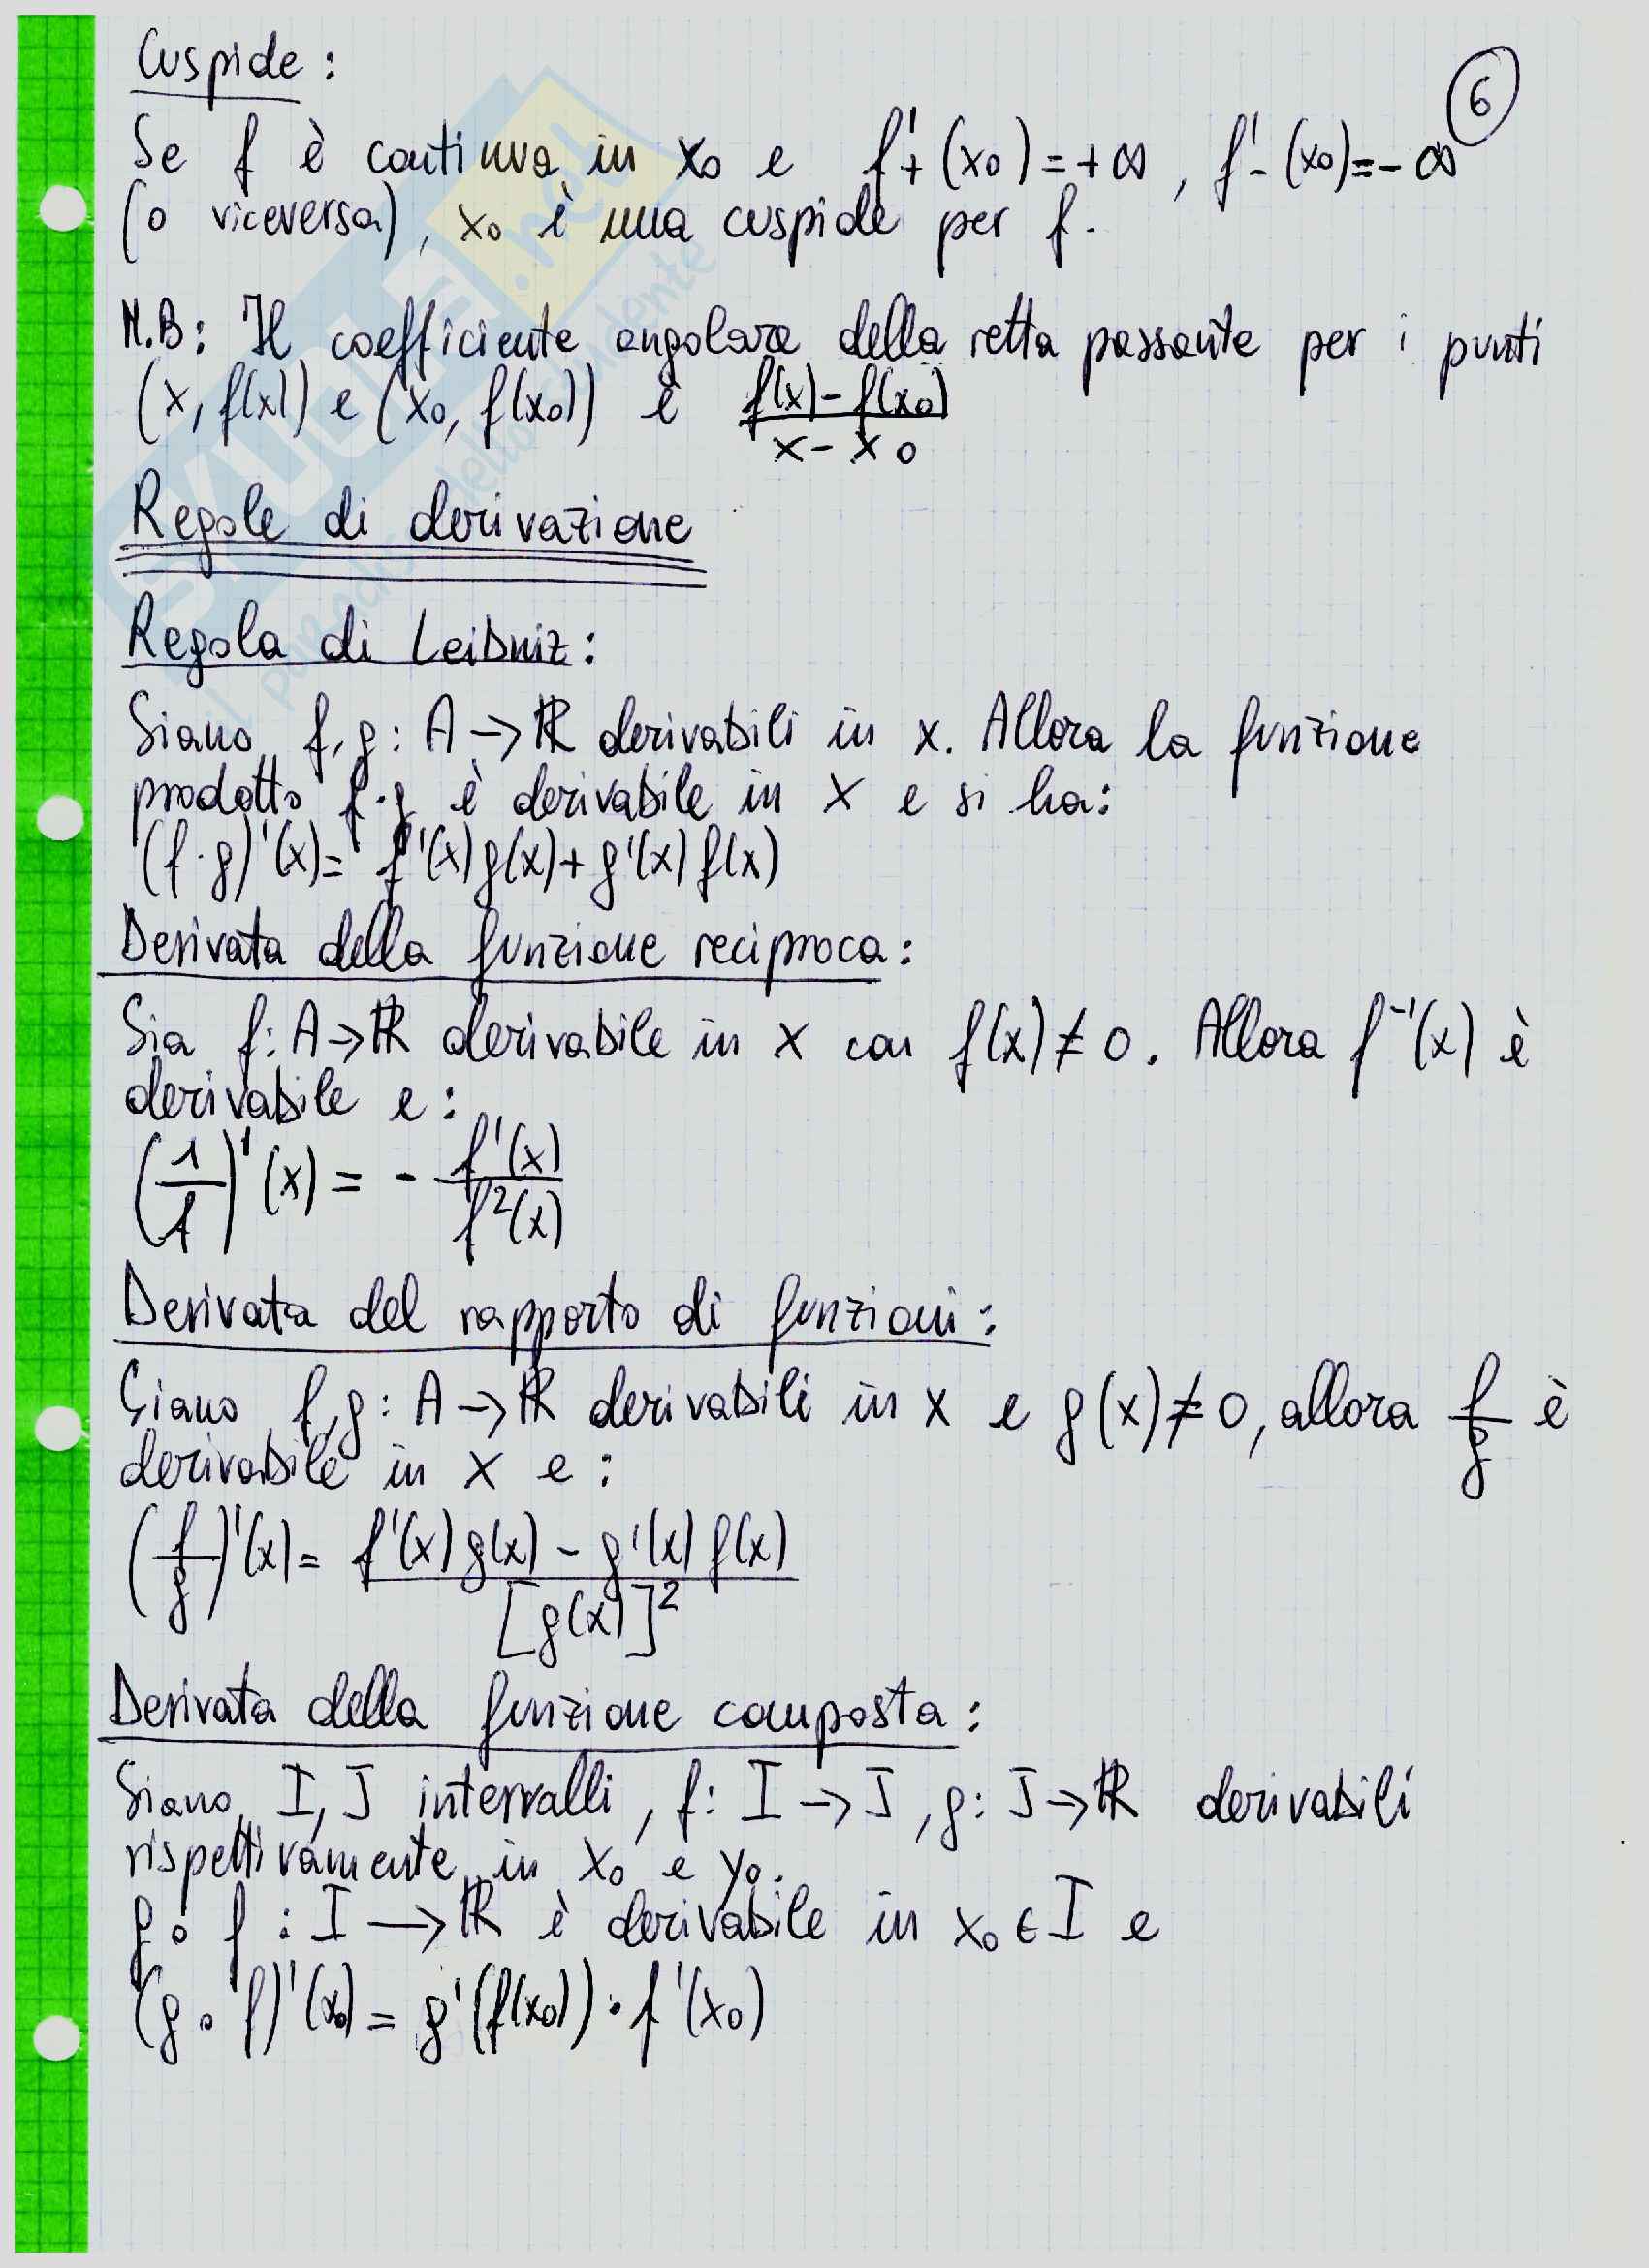 Cuspide:
6
Se f è continua in x₀ e f'₊(x₀)=+∞, f'₋(x₀)=-∞
(o viceversa), x₀ è una cuspide per f.
N.B: Il coefficiente angolare della retta passante per i punti
(x, f(x)) e (x₀, f(x₀)) è (f(x)-f(x₀))/(x-x₀)
Regole di derivazione
Regola di Leibniz:
Siano f,g: A→ℝ derivabili in x. Allora la funzione
prodotto f·g è derivabile in x e si ha:
(f·g)'(x)= f'(x)g(x)+g'(x)f(x)
Derivata della funzione reciproca:
Sia f: A→ℝ derivabile in x con f(x)≠0. Allora f⁻¹(x) è
derivabile e:
(1/f)'(x) = - f'(x)/f²(x)
Derivata del rapporto di funzioni:
Siano f,g: A→ℝ derivabili in x e g(x)≠0, allora f/g è
derivabile in x e:
(f/g)'(x)= (f'(x)g(x) - g'(x)f(x))/[g(x)]²
Derivata della funzione composta:
Siano I,J intervalli, f: I→J, g: J→ℝ derivabili
rispettivamente in x₀ e y₀.
g∘f: I→ℝ è derivabile in x₀∈I e
(g∘f)'(x₀)= g'(f(x₀))·f'(x₀)